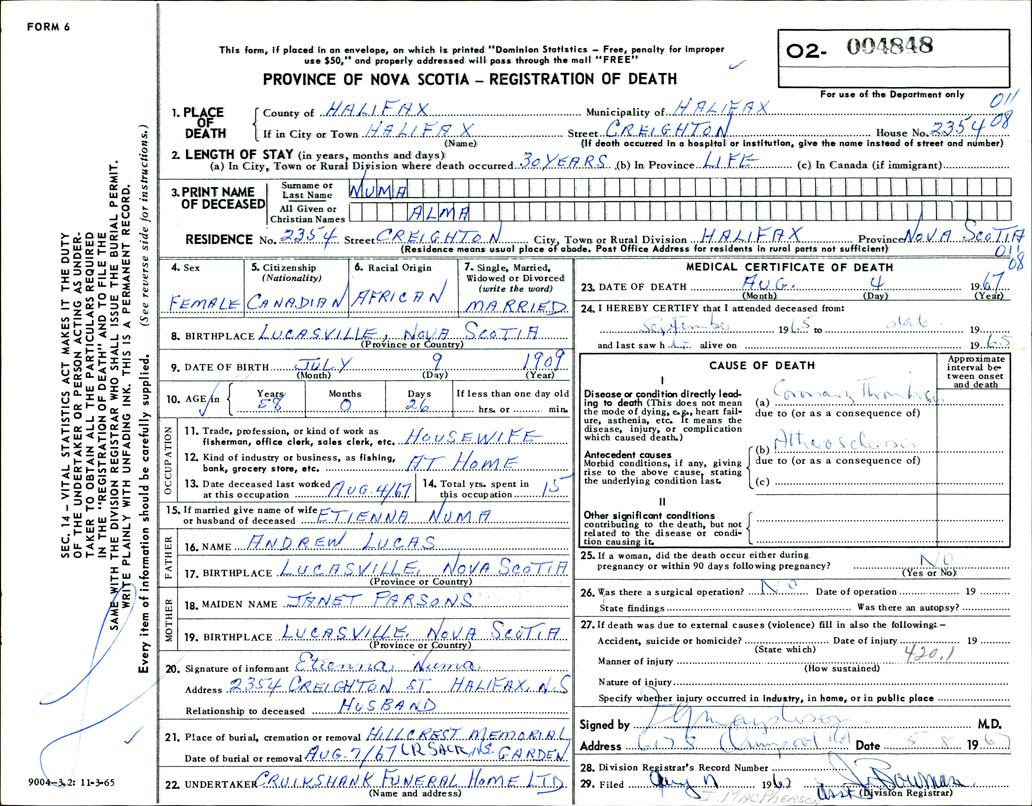 FORM 6
This form, if placed in an envelope, on which is printed "Dominion Statistics – Free, penalty for improper
use $50," and properly addressed will pass through the mail "FREE"
PROVINCE OF NOVA SCOTIA – REGISTRATION OF DEATH
02- 004848
For use of the Department only
011
08
1. PLACE OF DEATH
County of HALIFAX Municipality of HALIFAX
If in City or Town HALIFAX Street CREIGHTON House No. 2354
(Name) (If death occurred in a hospital or institution, give the name instead of street and number)
2. LENGTH OF STAY (in years, months and days)
(a) In City, Town or Rural Division where death occurred 30 YEARS (b) In Province LIFE (c) In Canada (if immigrant)
3. PRINT NAME OF DECEASED
Surname or Last Name NUMA
All Given or Christian Names ALMA
RESIDENCE No. 2354 Street CREIGHTON City, Town or Rural Division HALIFAX Province NOVA SCOTIA
(Residence means usual place of abode. Post Office Address for residents in rural parts not sufficient)
011
08
4. Sex FEMALE
5. Citizenship (Nationality) CANADIAN
6. Racial Origin AFRICAN
7. Single, Married, Widowed or Divorced (write the word) MARRIED
8. BIRTHPLACE LUCASVILLE, NOVA SCOTIA
(Province or Country)
9. DATE OF BIRTH JULY 9 1909
(Month) (Day) (Year)
10. AGE in Years 58 Months 0 Days 26 If less than one day old hrs. or min.
OCCUPATION
11. Trade, profession, or kind of work as fisherman, office clerk, sales clerk, etc. HOUSEWIFE
12. Kind of industry or business, as fishing, bank, grocery store, etc. AT HOME
13. Date deceased last worked at this occupation AUG. 4/67 14. Total yrs. spent in this occupation 15
15. If married give name of wife or husband of deceased ETIENNA NUMA
FATHER
16. NAME ANDREW LUCAS
17. BIRTHPLACE LUCASVILLE, NOVA SCOTIA
(Province or Country)
MOTHER
18. MAIDEN NAME JANET PARSONS
19. BIRTHPLACE LUCASVILLE, NOVA SCOTIA
(Province or Country)
20. Signature of informant Etienna Numa
Address 2354 CREIGHTON ST HALIFAX, N.S
Relationship to deceased HUSBAND
21. Place of burial, cremation or removal HILLCREST MEMORIAL
Date of burial or removal AUG. 7/67 LR SACK, NS. GARDEN
22. UNDERTAKER CRUIKSHANK FUNERAL HOME LTD
(Name and address)
MEDICAL CERTIFICATE OF DEATH
23. DATE OF DEATH AUG. 4 1967
(Month) (Day) (Year)
24. I HEREBY CERTIFY that I attended deceased from:
September 1965 to date 19
and last saw h alive on 1965
CAUSE OF DEATH
Approximate interval between onset and death
I
Disease or condition directly leading to death (This does not mean the mode of dying, e.g., heart failure, asthenia, etc. It means the disease, injury, or complication which caused death.)
(a) Coronary Thrombosis
due to (or as a consequence of)
Antecedent causes
Morbid conditions, if any, giving rise to the above cause, stating the underlying condition last.
(b)
due to (or as a consequence of)
(c)
II
Other significant conditions
contributing to the death, but not related to the disease or condition causing it.
25. If a woman, did the death occur either during
pregnancy or within 90 days following pregnancy? NO
(Yes or No)
26. Was there a surgical operation? NO Date of operation 19
State findings Was there an autopsy?
27. If death was due to external causes (violence) fill in also the following: –
Accident, suicide or homicide? Date of injury 19
(State which) 420.1
Manner of injury
(How sustained)
Nature of injury
Specify whether injury occurred in industry, in home, or in public place
Signed by M.D.
Address 6175 Date 5 8 1967
28. Division Registrar's Record Number
29. Filed Aug 7 1967 Bowman
(Division Registrar)
I. MACPHERSON
SEC. 14 – VITAL STATISTICS ACT MAKES IT THE DUTY
OF THE UNDERTAKER OR PERSON ACTING AS UNDER-
TAKER TO OBTAIN ALL THE PARTICULARS REQUIRED
IN THE "REGISTRATION OF DEATH" AND TO FILE THE
SAME WITH THE DIVISION REGISTRAR WHO SHALL ISSUE THE BURIAL PERMIT.
WRITE PLAINLY WITH UNFADING INK. THIS IS A PERMANENT RECORD.
Every item of information should be carefully supplied. (See reverse side for instructions.)
9004-3.2: 11-3-65